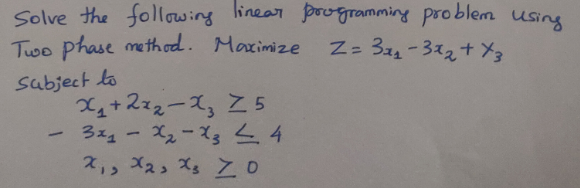 Solve the following linear programming problem using
Two phase method. Maximize Z = 3x₁ - 3x₂ + x₃
Subject to
x₁ + 2x₂ - x₃ ≥ 5
- 3x₁ - x₂ - x₃ ≤ 4
x₁, x₂, x₃ ≥ 0